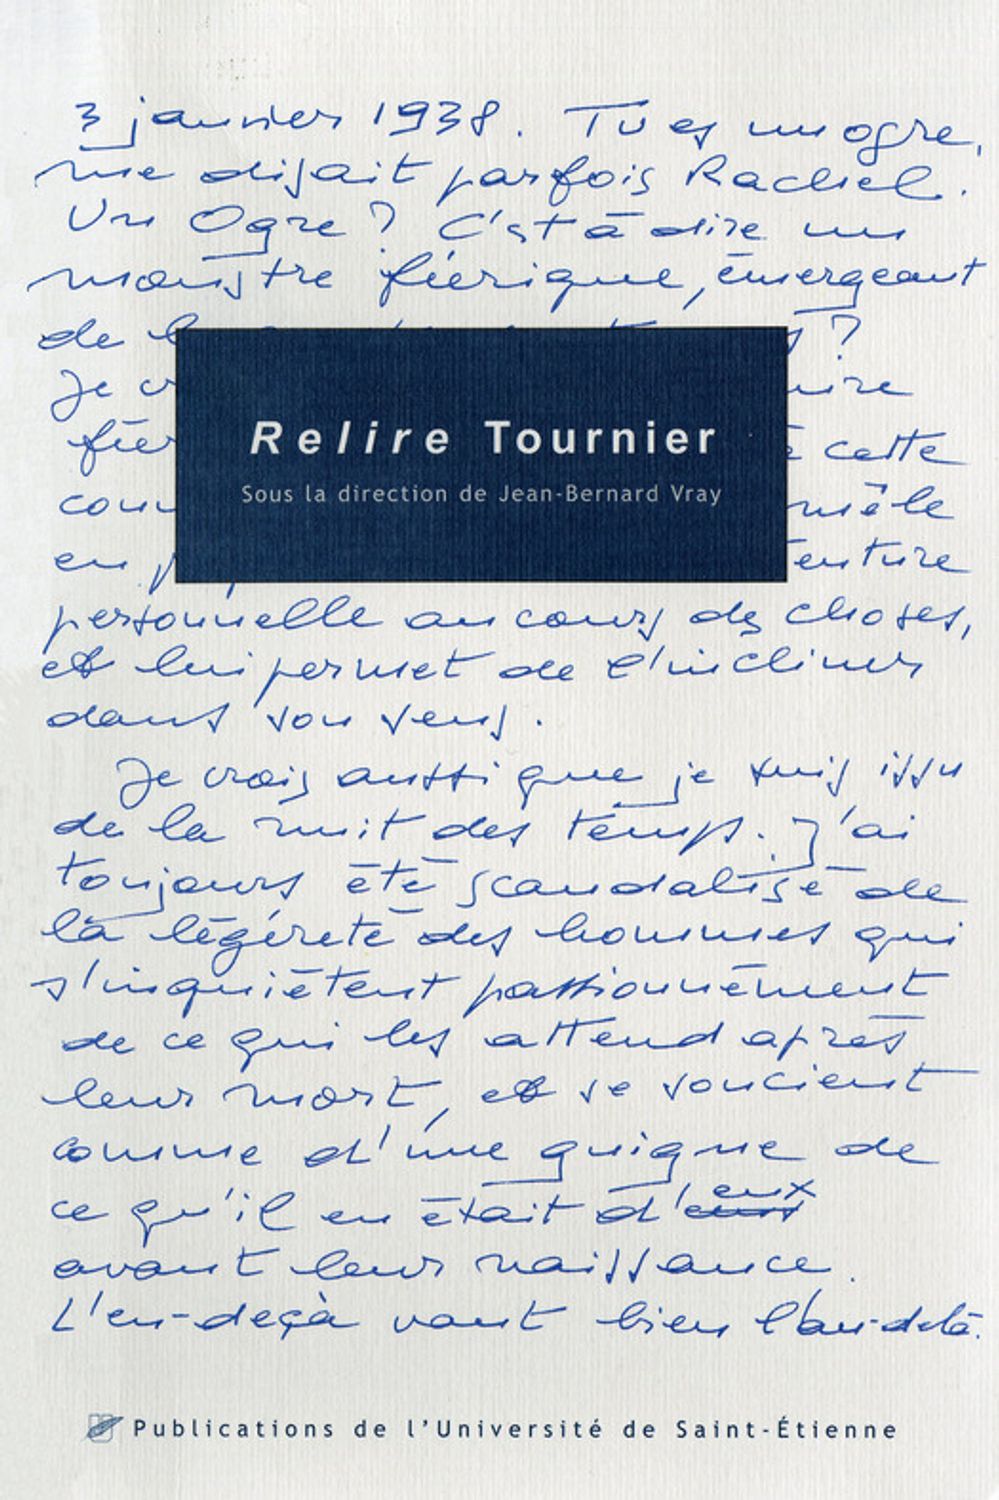 3 janvier 1938. Tu es un ogre,
me disait parfois Rachel.
Un Ogre ? C'est à dire un
monstre féerique, émergeant
de ?
Je
cette
mêle
en
Relire Tournier
Sous la direction de Jean-Bernard Vray
personnelle au cours des choses,
et lui permet de l'incliner
dans son sens.
Je crois aussi que je suis issu
de la nuit des temps. J'ai
toujours été scandalisé de
la légèreté des hommes qui
s'inquiètent passionnément
de ce qui les attend après
leur mort, et se soucient
comme d'une guigne de
ce qu'il en était d'eux
avant leur naissance.
L'en-deçà vaut bien l'au-delà.
Publications de l'Université de Saint-Étienne